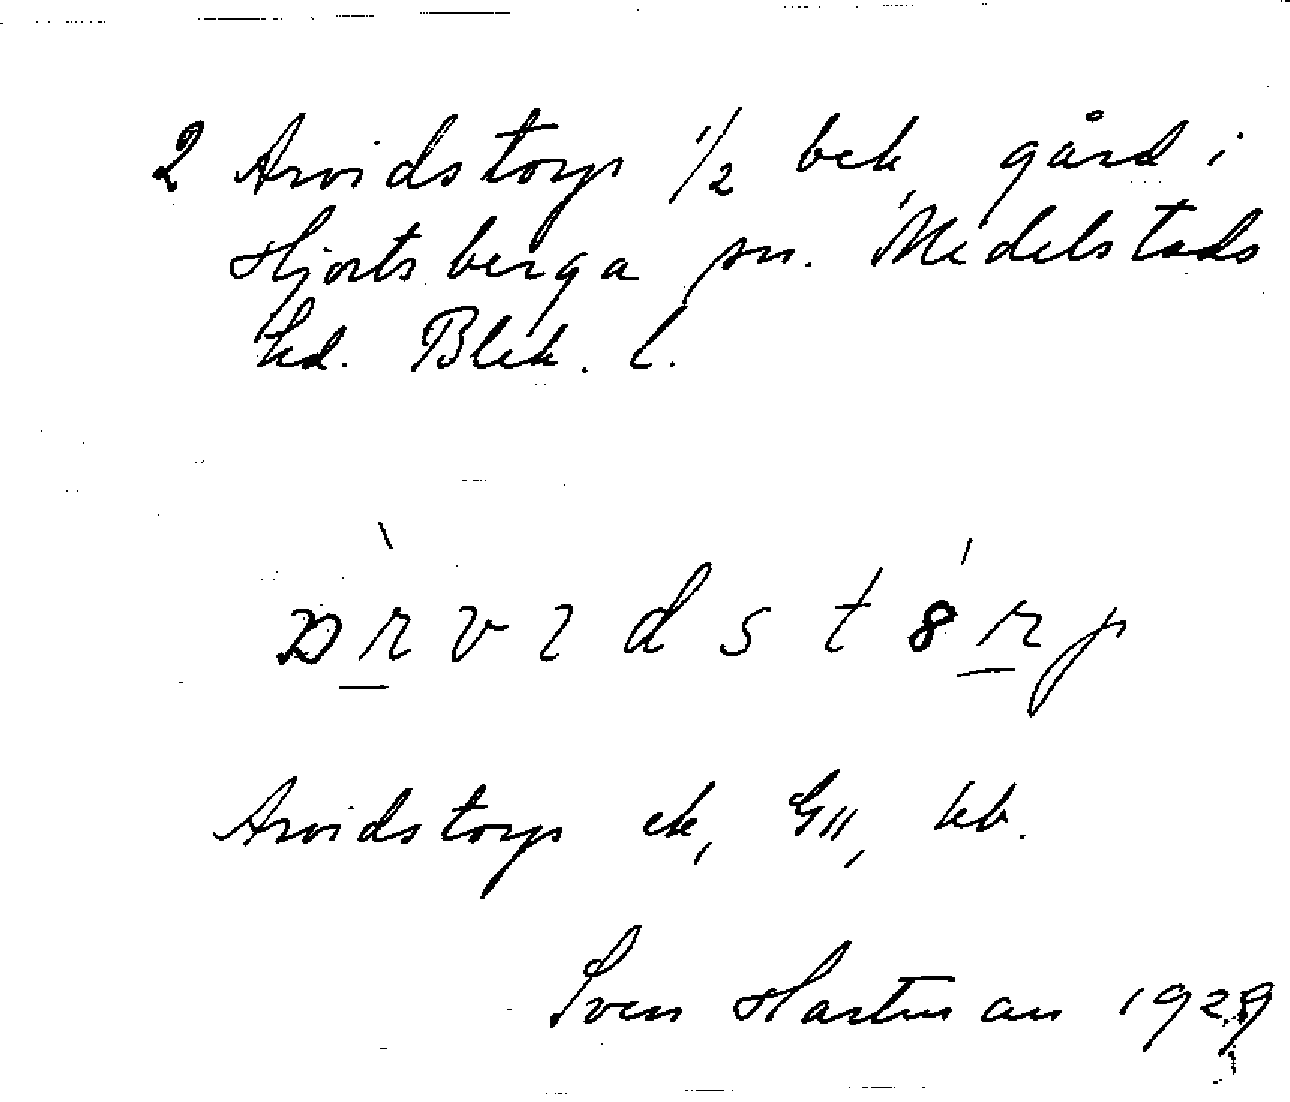 2 Arvidstorp 1/2 bek, gård i
Hjortsberga sn. Medelstads
hd. Blek. l.
Arvidstorp ek, GII, kb.
Sven Hartman 1929